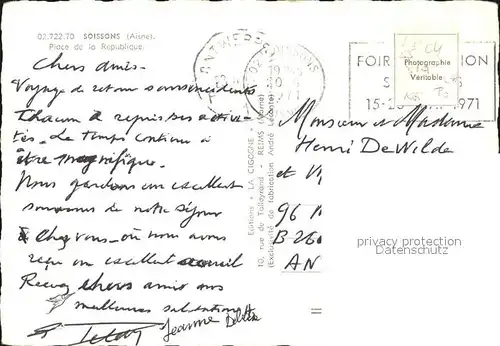 02.722.70 SOISSONS (Aisne).
Place de la République.
Chers amis-
Voyage de retour sans incidents
Chacun a repris ses activi-
tés. Le temps continue à
être magnifique.
Nous gardons un excellent
souvenir de notre séjour
chez vous - où nous avons
reçu un excellent accueil
Recevez chers amis nos
meilleures salutations
Jeanne
Editions " LA CIGOGNE " - REIMS (Marne)
10, rue du Talleyrand
(Exclusivité de fabrication André Leconte)
SOISSONS
FOIR
15-2 1971
Photographie
Véritable
Monsieur et Madame
Henri DeWilde
et
96
B-260
AN
privacy protection
Datenschutz